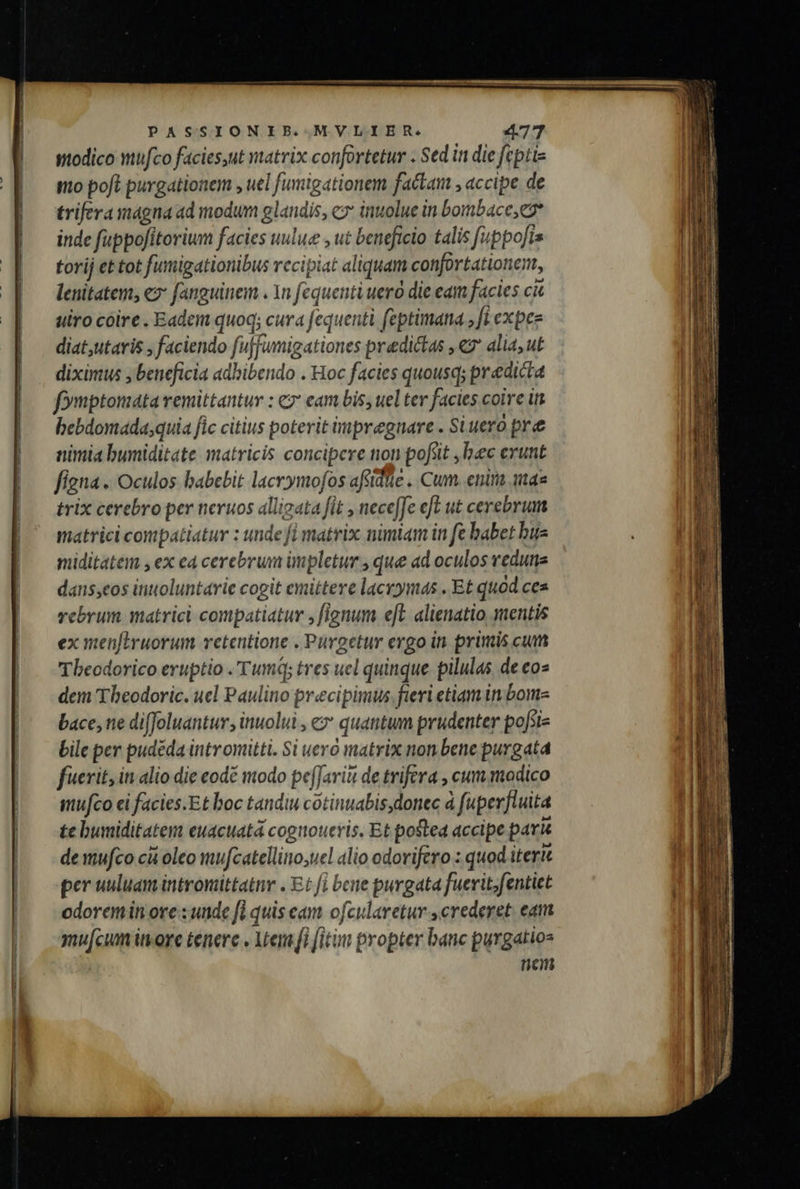 PASSIONIB. MVLIER. 477
modico muſco facies,ut matrix confortetur . Sed in die ſepti=
mo poſt purgationem , uel fumigationem factam , accipe de
trifera magna ad modum glandis, & inuolue in bombace,&
inde ſuppoſitorium facies uuluæ , ut beneficio talis ſuppoſi=
torij et tot fumigationibus recipiat aliquam confortationem,
lenitatem, & ſanguinem . In ſequenti uerò die eam facies cũ
uiro coire . Eadem quoq; cura ſequenti ſeptimana , ſi expe=
diat,utaris , faciendo ſuffumigationes prædictas , & alia, ut
diximus , beneficia adhibendo . Hoc facies quousq; prædicta
ſymptomata remittantur : & eam bis, uel ter facies coire in
hebdomada,quia ſic citius poterit imprægnare . Si uerò præ
nimia humiditate matricis concipere non poſsit , hæc erunt
ſigna . Oculos habebit lacrymoſos aſsidue . Cum enim ma=
trix cerebro per neruos alligata ſit , neceſſe eſt ut cerebrum
matrici compatiatur : unde ſi matrix nimiam in ſe habet hu=
miditatem , ex ea cerebrum impletur , quæ ad oculos redun=
dans,eos inuoluntarie cogit emittere lacrymas . Et quòd ce=
rebrum matrici compatiatur , ſignum eſt alienatio mentis
ex menſtruorum retentione . Purgetur ergo in primis cum
Theodorico eruptio . Tumq; tres uel quinque pilulas de eo=
dem Theodoric. uel Paulino præcipimus fieri etiam in bom=
bace, ne diſſoluantur, inuolui , & quantum prudenter poſsi=
bile per pudẽda intromitti. Si uerò matrix non bene purgata
fuerit, in alio die eodẽ modo peſſariũ de trifera , cum modico
muſco ei facies.Et hoc tandiu cõtinuabis,donec à ſuperfluita
te humiditatem euacuatã cognoueris. Et postea accipe parũ
de muſco cũ oleo muſcatellino,uel alio odorifero : quod iterũ
per uuluam intromittatur . Et ſi bene purgata fuerit,ſentiet
odorem in ore : unde ſi quis eam oſcularetur , crederet eam
muſcum in ore tenere . Item ſi ſitim propter hanc purgatio=
nem